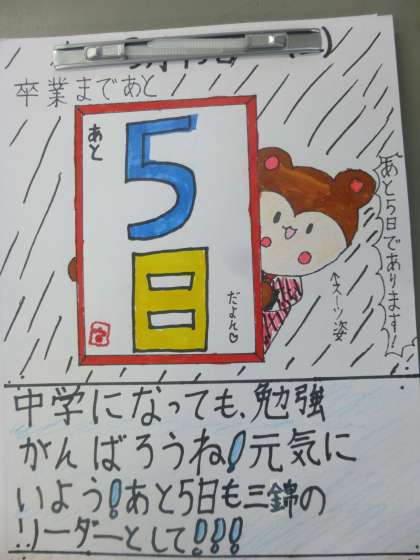 卒業まであと
あと
5
日
だよん♡
あと5日であります!
↑スーツ姿
中学になっても、勉強
がんばろうね!元気に
いよう!あと5日も三錦の
リーダーとして!!!